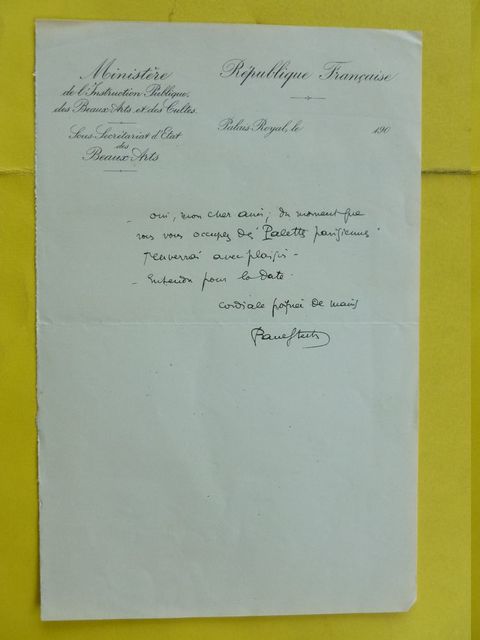 Ministère
de l'Instruction Publique,
des Beaux-Arts et des Cultes.
Sous-Secrétariat d'État
des
Beaux-Arts
République Française
Palais Royal, le 190
- oui, mon cher ami, du moment que
vous vous occupez des "Palettes parisiennes"
j'enverrai avec plaisir -
- Entendu pour la date -
cordiale poignée de mains